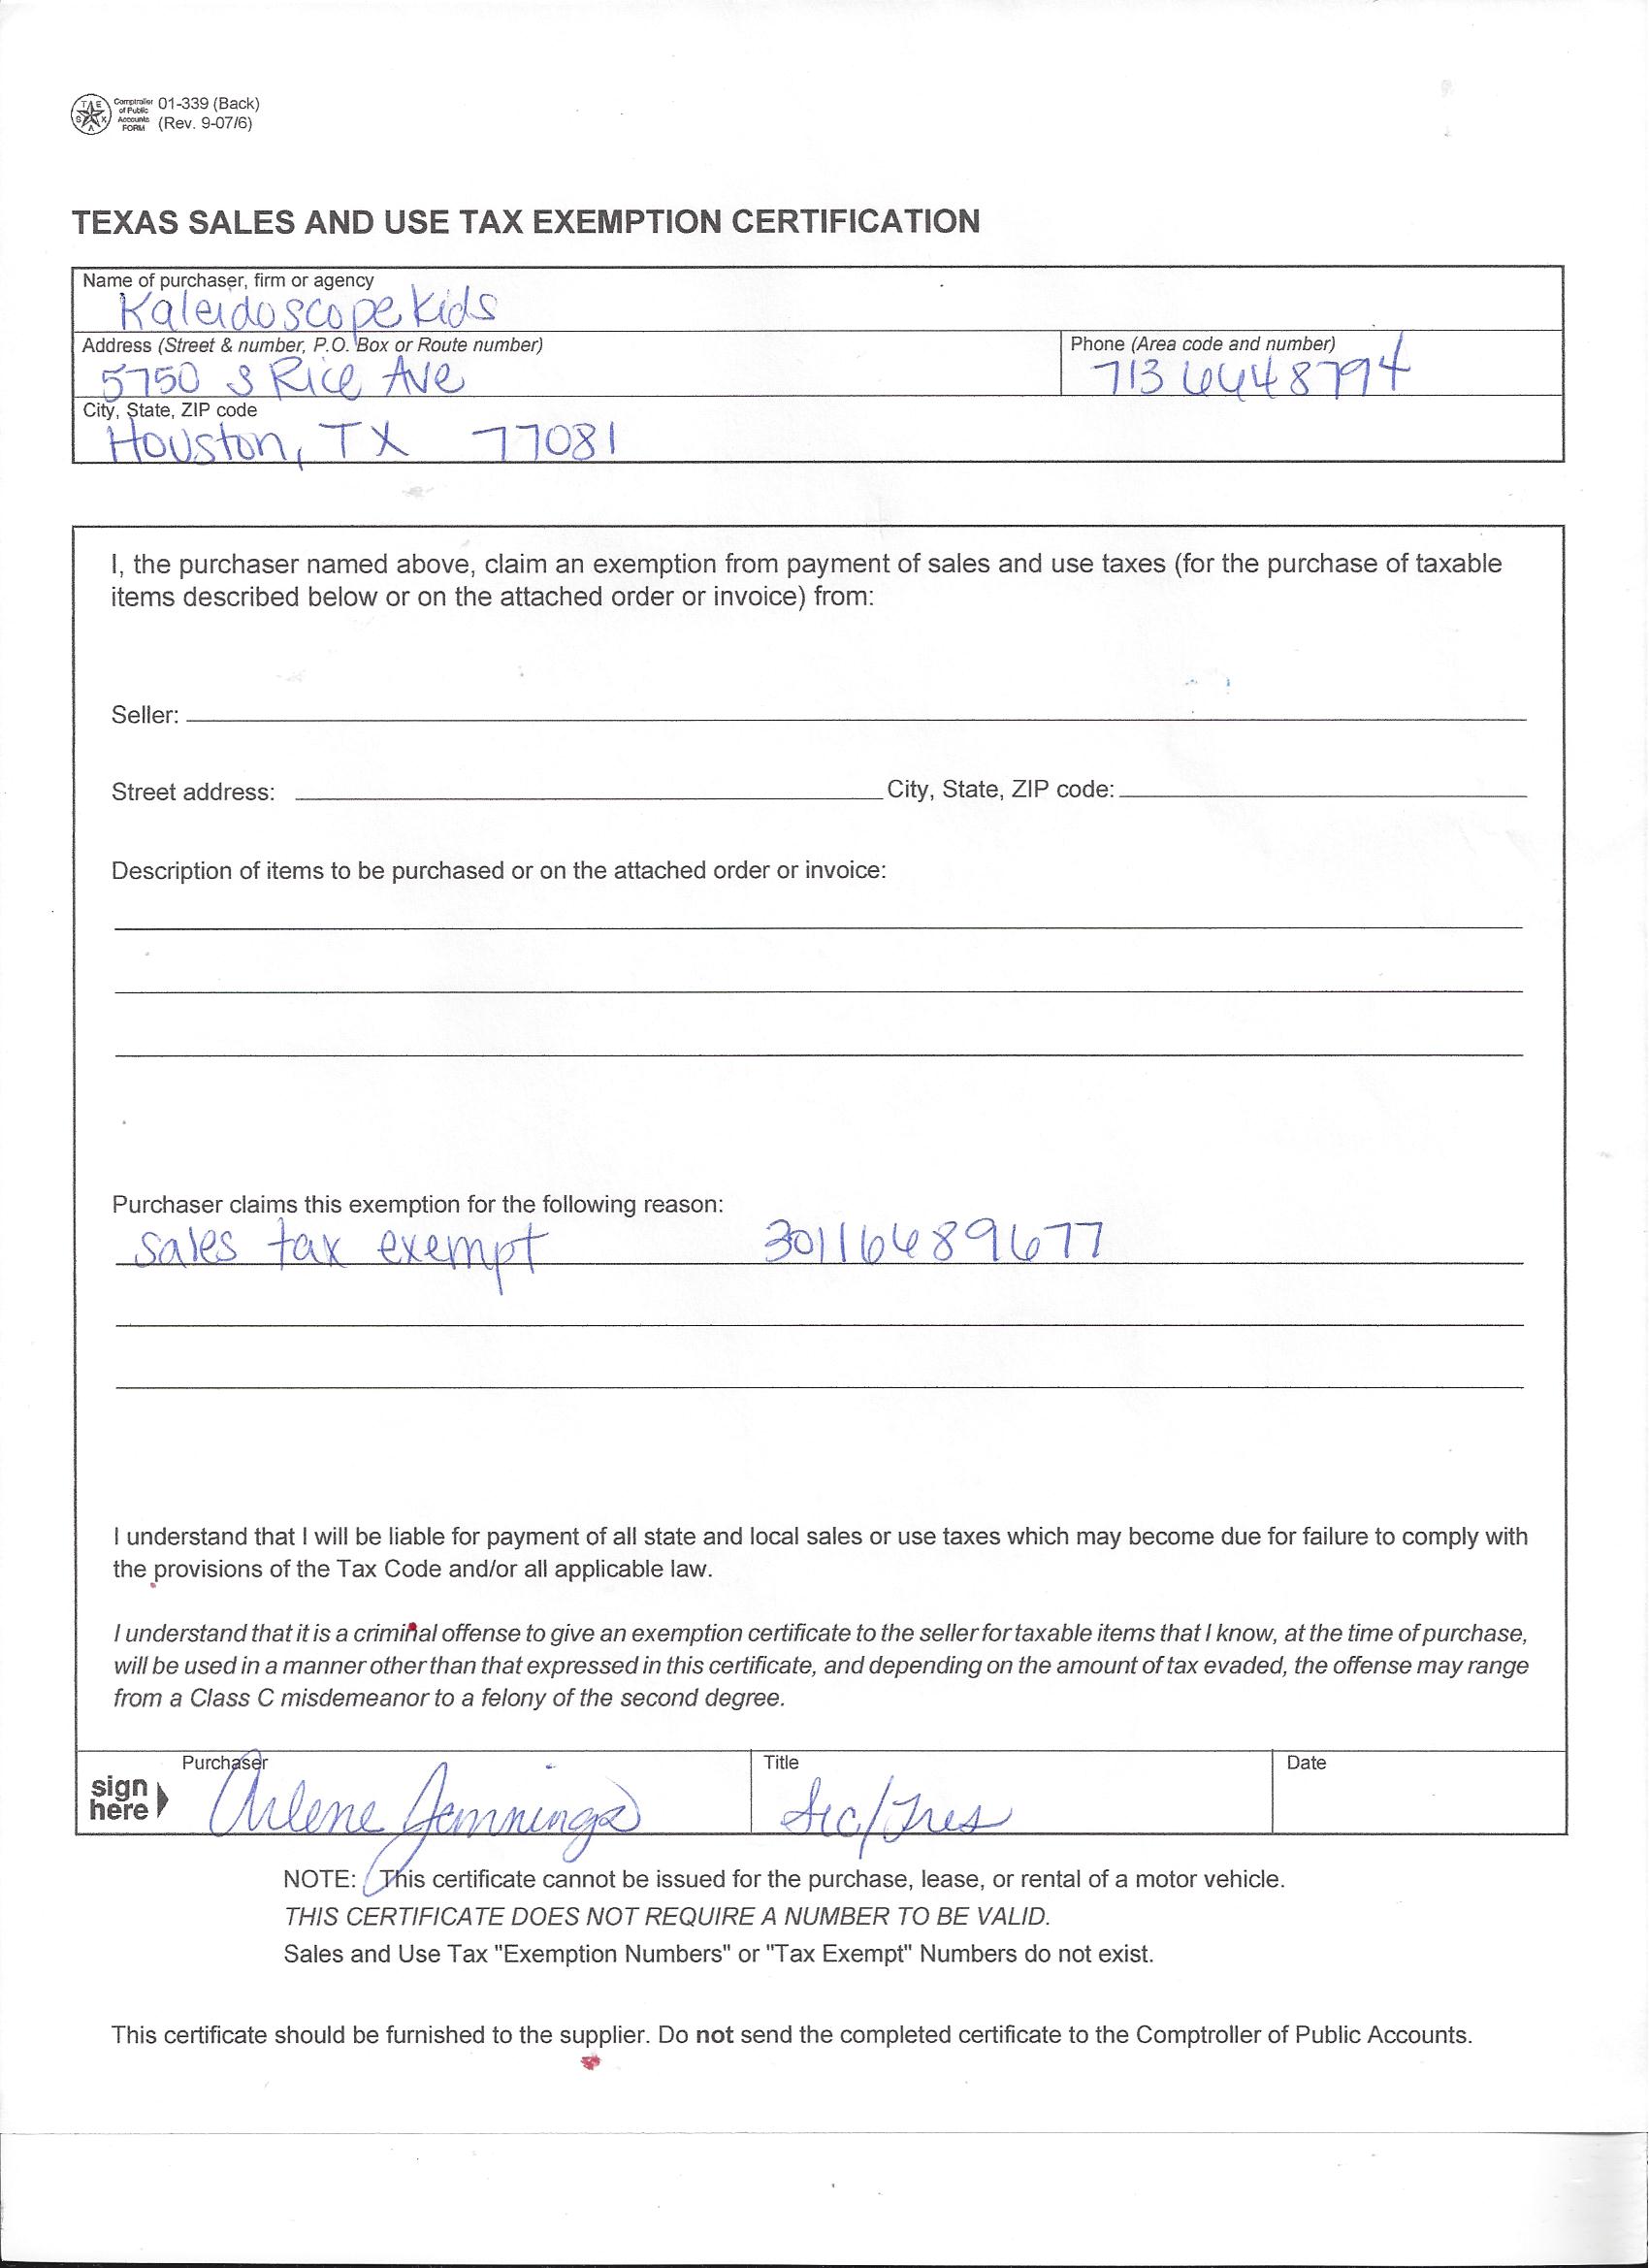 TAE
SXA
Comptroller
of Public
Accounts
FORM
01-339 (Back)
(Rev. 9-07/6)
TEXAS SALES AND USE TAX EXEMPTION CERTIFICATION
Name of purchaser, firm or agency
Kaleidoscope Kids
Address (Street & number, P.O. Box or Route number)
Phone (Area code and number)
5750 S Rice Ave
713 6448794
City, State, ZIP code
Houston, TX 77081
I, the purchaser named above, claim an exemption from payment of sales and use taxes (for the purchase of taxable
items described below or on the attached order or invoice) from:
Seller:
Street address: City, State, ZIP code:
Description of items to be purchased or on the attached order or invoice:
Purchaser claims this exemption for the following reason:
sales tax exempt 30116489677
I understand that I will be liable for payment of all state and local sales or use taxes which may become due for failure to comply with
the provisions of the Tax Code and/or all applicable law.
I understand that it is a criminal offense to give an exemption certificate to the seller for taxable items that I know, at the time of purchase,
will be used in a manner other than that expressed in this certificate, and depending on the amount of tax evaded, the offense may range
from a Class C misdemeanor to a felony of the second degree.
sign
here
Purchaser
Arlene Jennings
Title
Sec/Tres
Date
NOTE: This certificate cannot be issued for the purchase, lease, or rental of a motor vehicle.
THIS CERTIFICATE DOES NOT REQUIRE A NUMBER TO BE VALID.
Sales and Use Tax "Exemption Numbers" or "Tax Exempt" Numbers do not exist.
This certificate should be furnished to the supplier. Do not send the completed certificate to the Comptroller of Public Accounts.